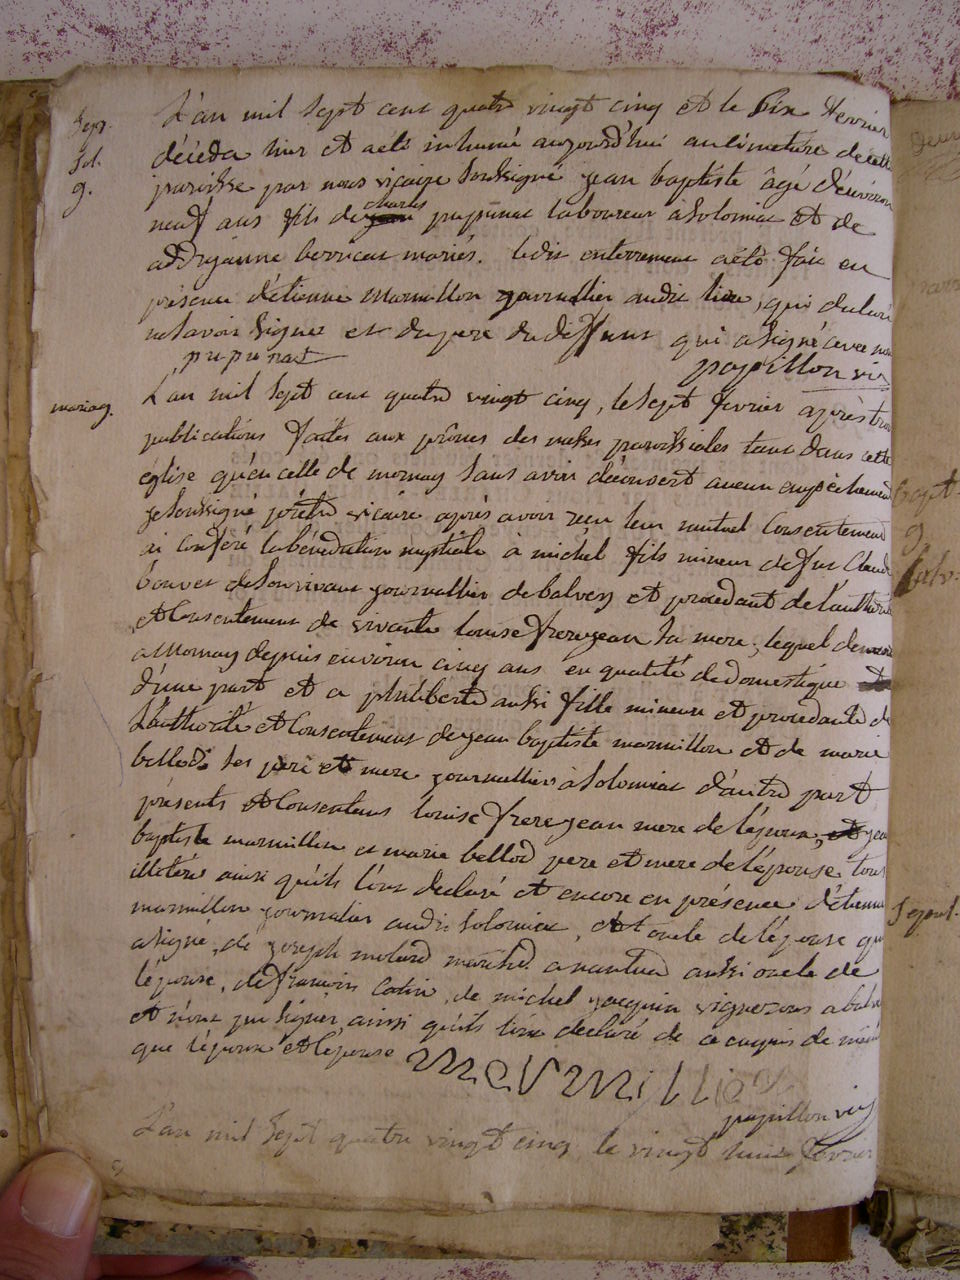 Sep.
Sol.
g.
L'an mil sept cent quatre vingt cinq et le six fevrier
décéda hier et a été inhumé aujourd'hui au cimetiere de cette
paroisse par nous vicaire soussigné jean baptiste âgé d'environ
neuf ans fils de charles pupunat laboureur à Solomiat et de
berricat mariés. ledit enterrement a été fait en
présence d'étienne marmillon journallier audit lieu, qui a déclaré
ne savoir signer et du pere du deffunt qui a signé avec nous
pupunat
papillon vic
mariag.
L'an mil sept cent quatre vingt cinq, le sept fevrier après trois
publications faites aux prônes des messes paroissiales tant dans cette
église qu'en celle de mornay sans avoir découvert aucun empêchement
je soussigné prêtre vicaire après avoir reçu leur mutuel consentement
ai conféré la bénédiction nuptiale à michel fils mineur de feu Claude
bouvet de son vivant journallier de balvey et procedant de l'authorité
et consentement de vivante louise frerejean sa mere, lequel demeure
a Mornay depuis environ cinq ans en qualité de domestique
d'une part et a philiberte aussi fille mineure et procedante de
l'authorité et consentement de jean baptiste marmillon et de marie
bellod ses pere et mere journalliers à Solomiat d'autre part
présents et consentans louise frerejean mere de l'époux, jean
baptiste marmillon et marie bellod pere et mere de l'épouse tous
illiterés ainsi qu'ils l'ont declaré et encore en présence d'étienne
marmillon journalier audit Solomiat, et oncle de l'épouse qui
a signé, de joseph molard march.d a nantua aussi oncle de
l'épouse, de françois Cotin, de michel jacquin vignerons a balvey
et n'ont pu signer ainsi qu'ils l'ont declaré de ce enquis de même
que l'époux et l'épouse
papillon vic
L'an mil sept quatre vingt cinq le vingt huit fevrier
bapt.
g.
Sepul.